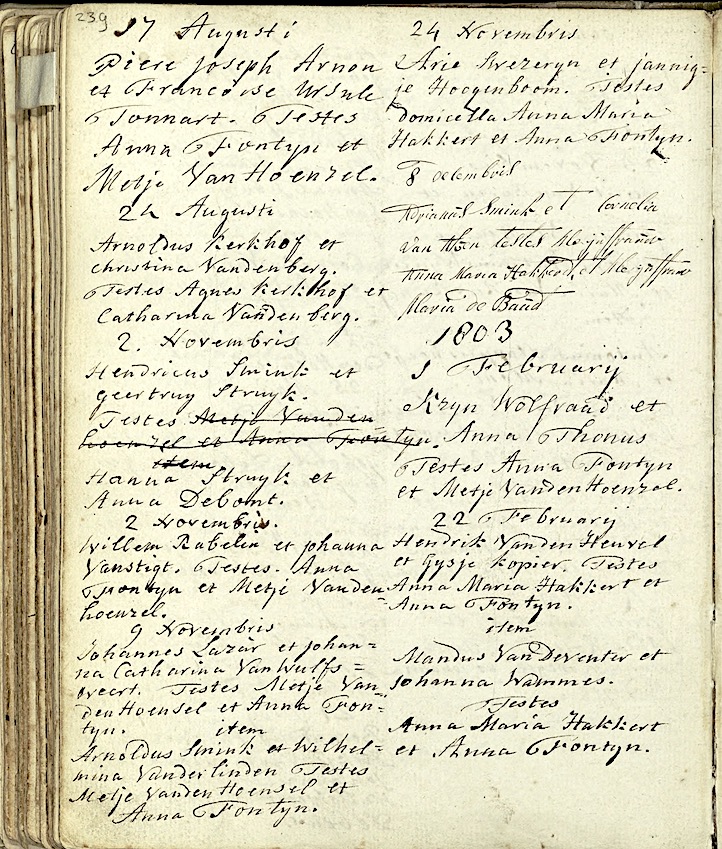 239
17 Augusti
Piere Joseph Arnon
et Francoise Ursule
Tonnart. Testes
Anna Fontyn et
Metje Van Hoenzel.
24 Augusti
Arnoldus Kerkhof et
christina Vandenberg.
Testes Agnes Kerkhof et
Catharina Vandenberg.
2. Novembris
Hendricus Smink et
geertruy Struyk.
Testes Metje Vanden
hoenzel et Anna Fontyn.
item
Hanna Struyk et
Anna Debont.
2 Novembris.
Willem Rabelin et johanna
Vanstigt. Testes. Anna
Fontyn et Metje Vanden
hoenzel.
9 Novembris
Johannes Lazar et johan=
na Catharina Van Wulfs=
weert. Testes Metje Van
den Hoensel et Anna Fon=
tyn. item
Arnoldus Smink et Wilhel=
mina Vanderlinden Testes
Metje Vanden Hoensel et
Anna Fontyn.
24 Novembris
Arie et jannig=
je Hoogenboom. Testes
domicella Anna Maria
Hakkert et Anna Fontyn.
8 decembris
Adrianus Smink et Cornelia
van testes Mejuffrauw
Anna Maria Hakkert et Mejuffrauw
Maria de
1803
1 Februarij
Kryn Wolfraad et
Anna Thonus
Testes Anna Fontyn
et Metje Vanden Hoenzel.
22 Februarij
Hendrik Vanden Heuvel
et Gysje Kopier. Testes
Anna Maria Hakkert et
Anna Fontyn.
item
Mandus Van Deventer et
Johanna Wammes.
Testes
Anna Maria Hakkert
et Anna Fontyn.